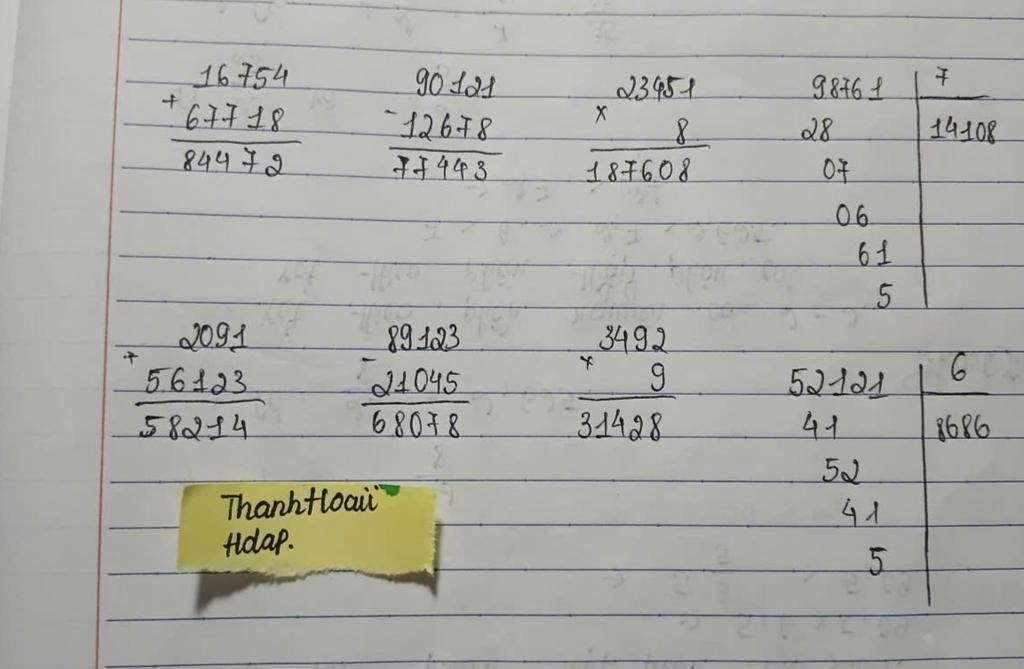 16754
+
67718
84472
90121
-
12678
77443
23451
x
8
187608
98761 7
28 14108
07
06
61
5
2091
+
56123
58214
89123
-
21045
68078
3492
x
9
31428
52121 6
41 8686
52
41
5
ThanhHoaii
Hdap.